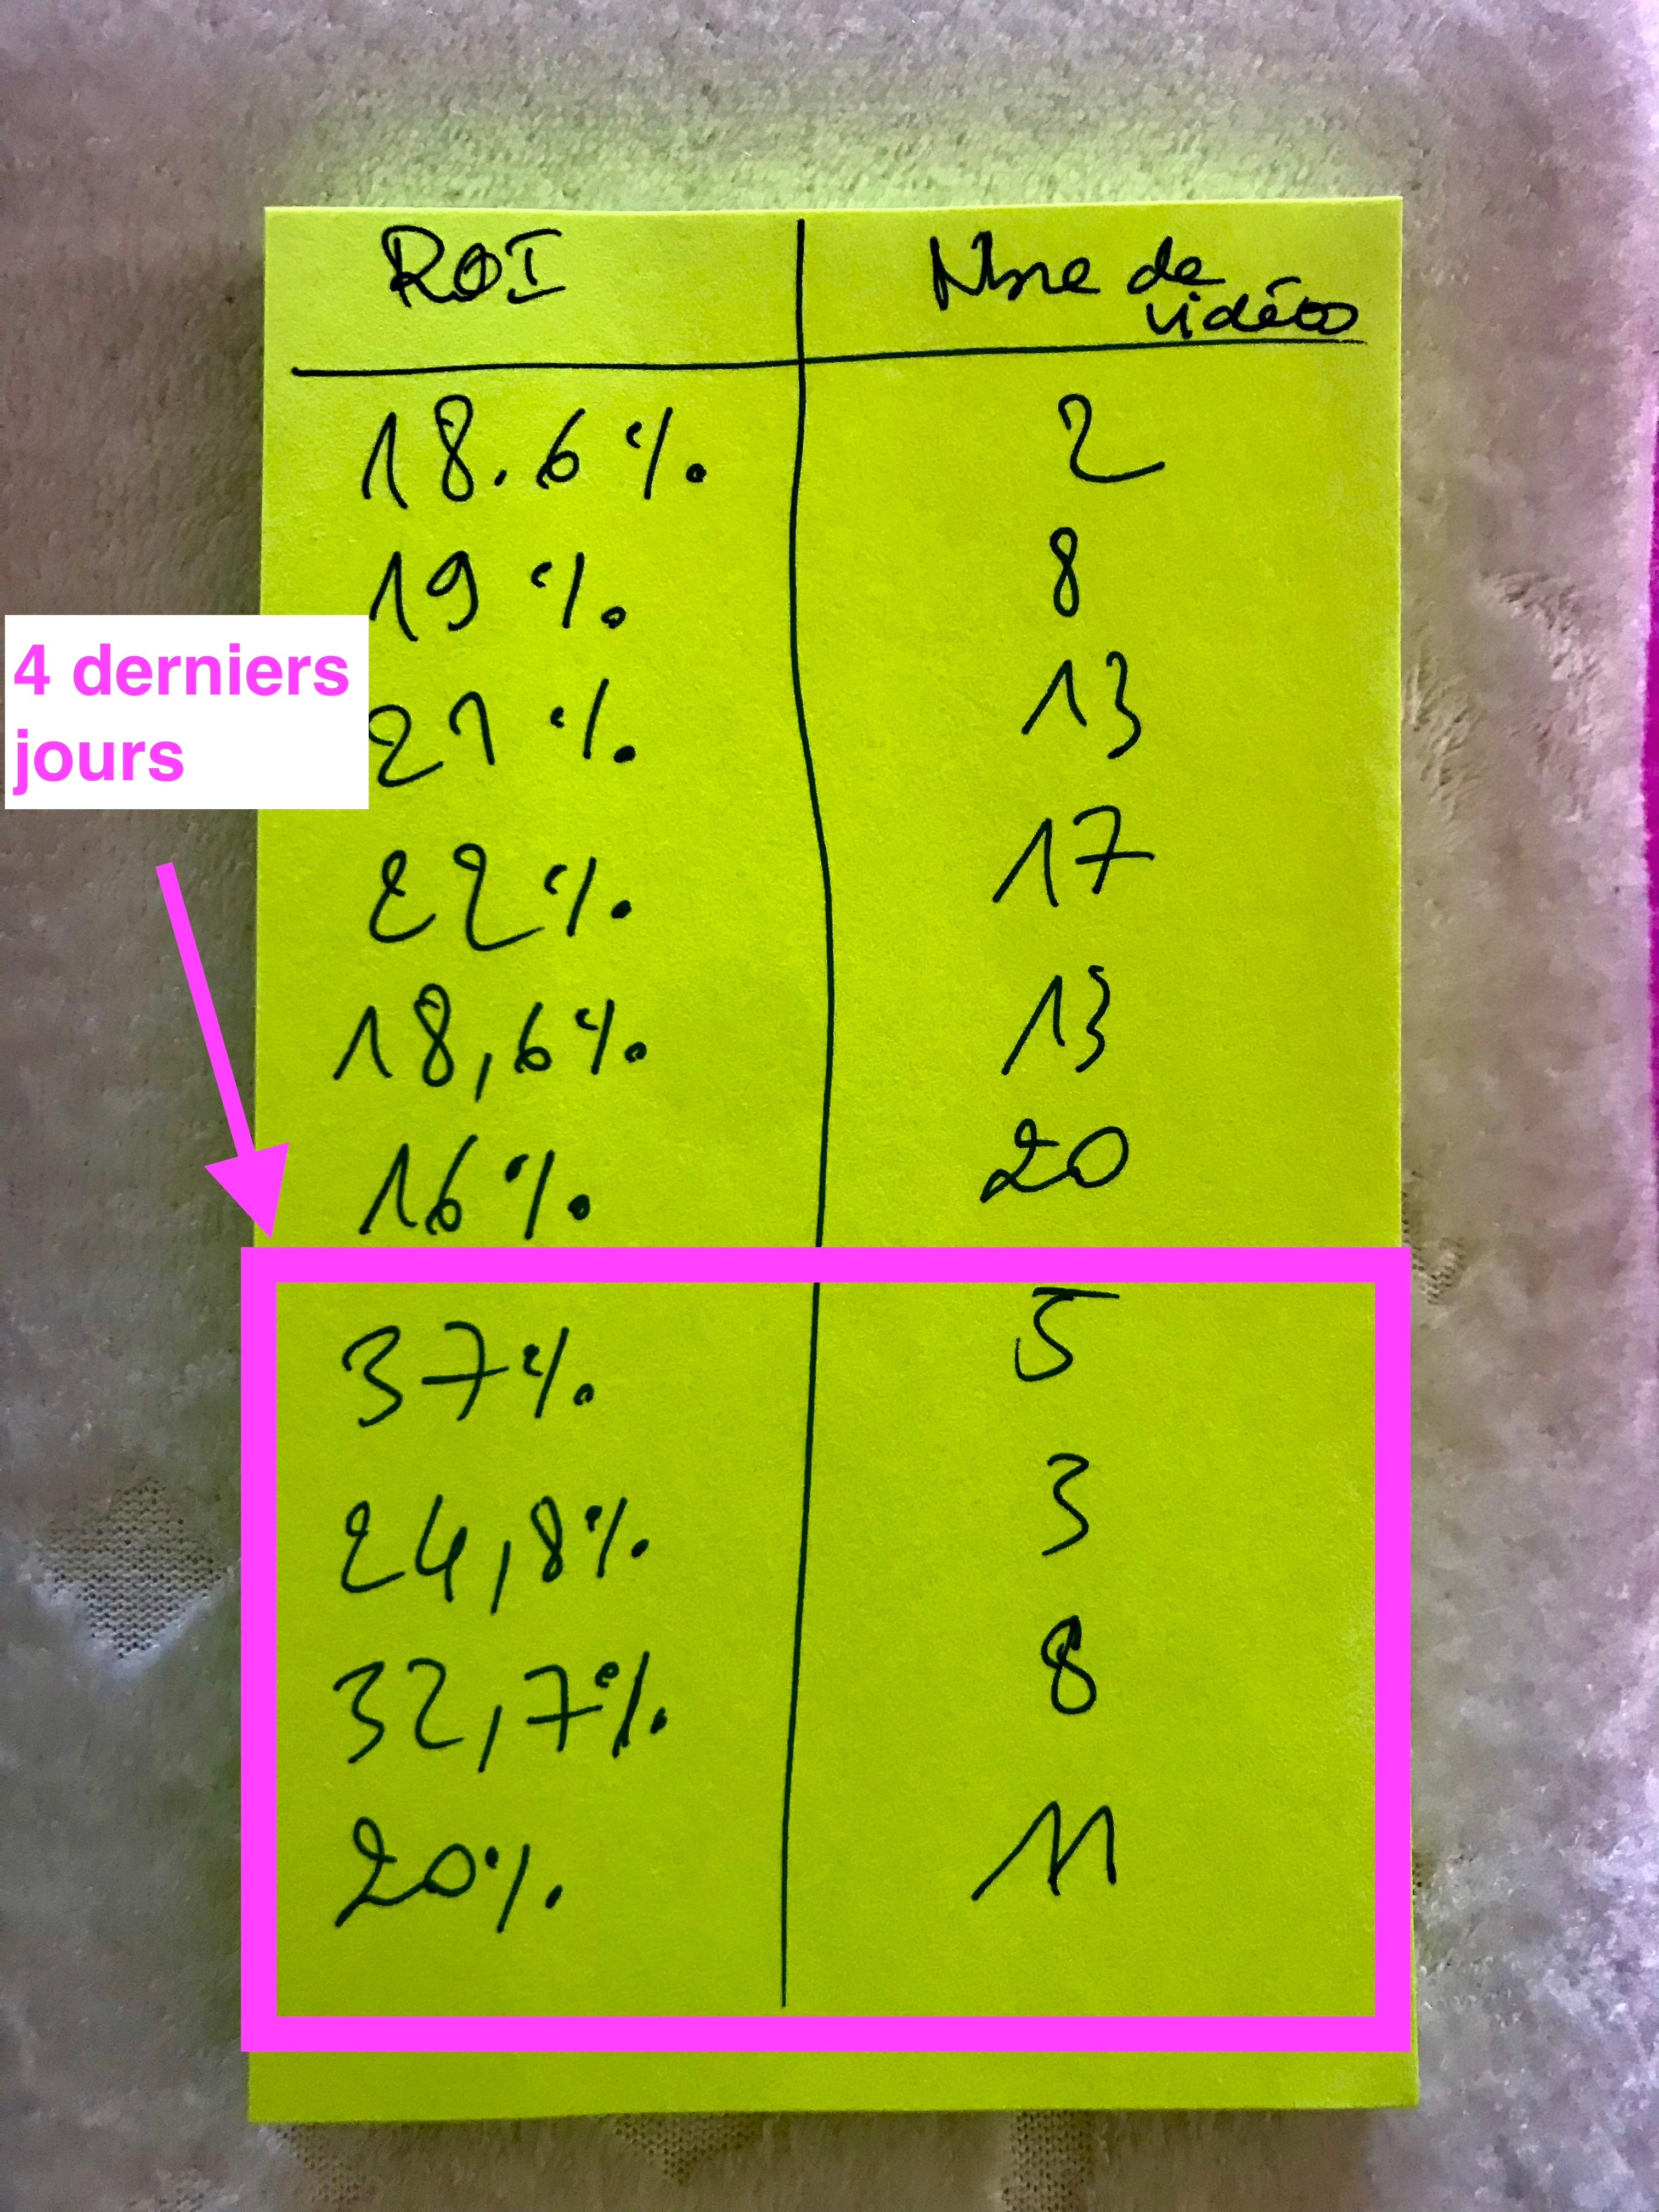 ROI Nbre de
vidéos
18.6% 2
19% 8
21% 13
22% 17
18,6% 13
16% 20
4 derniers
jours
37% 5
24,8% 3
32,7% 8
20% 11